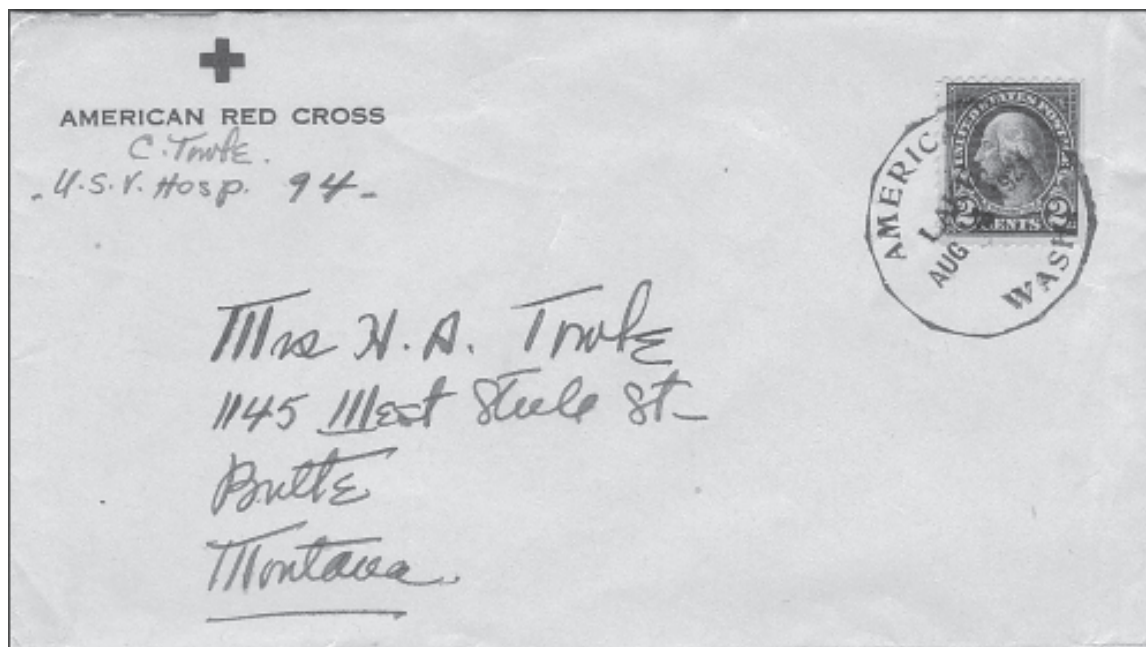 AMERICAN RED CROSS
C. Towle.
U.S.V. Hosp. 94
UNITED STATES POSTAGE
2 CENTS 2
AMERIC
LA
AUG
WASH
Mrs H. A. Towle
1145 West Steele St
Butte
Montana.